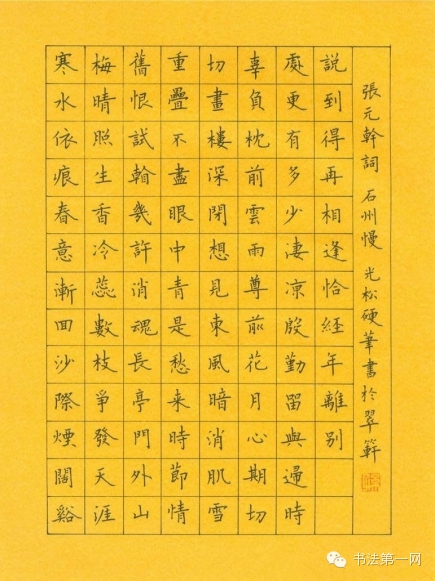 寒水依痕春意漸回沙際煙闊谿
梅晴照生香冷蕊數枝爭發天涯
舊恨試翰幾許消魂長亭門外山
重疊不盡眼中青是愁来時節情
切畫樓深閉想見東風暗消肌雪
辜負枕前雲雨尊前花月心期切
處更有多少淒涼殷勤留與歸時
說到得再相逢恰經年離別
張元幹詞 石州慢 光松硬筆書於翠軒
书法第一网